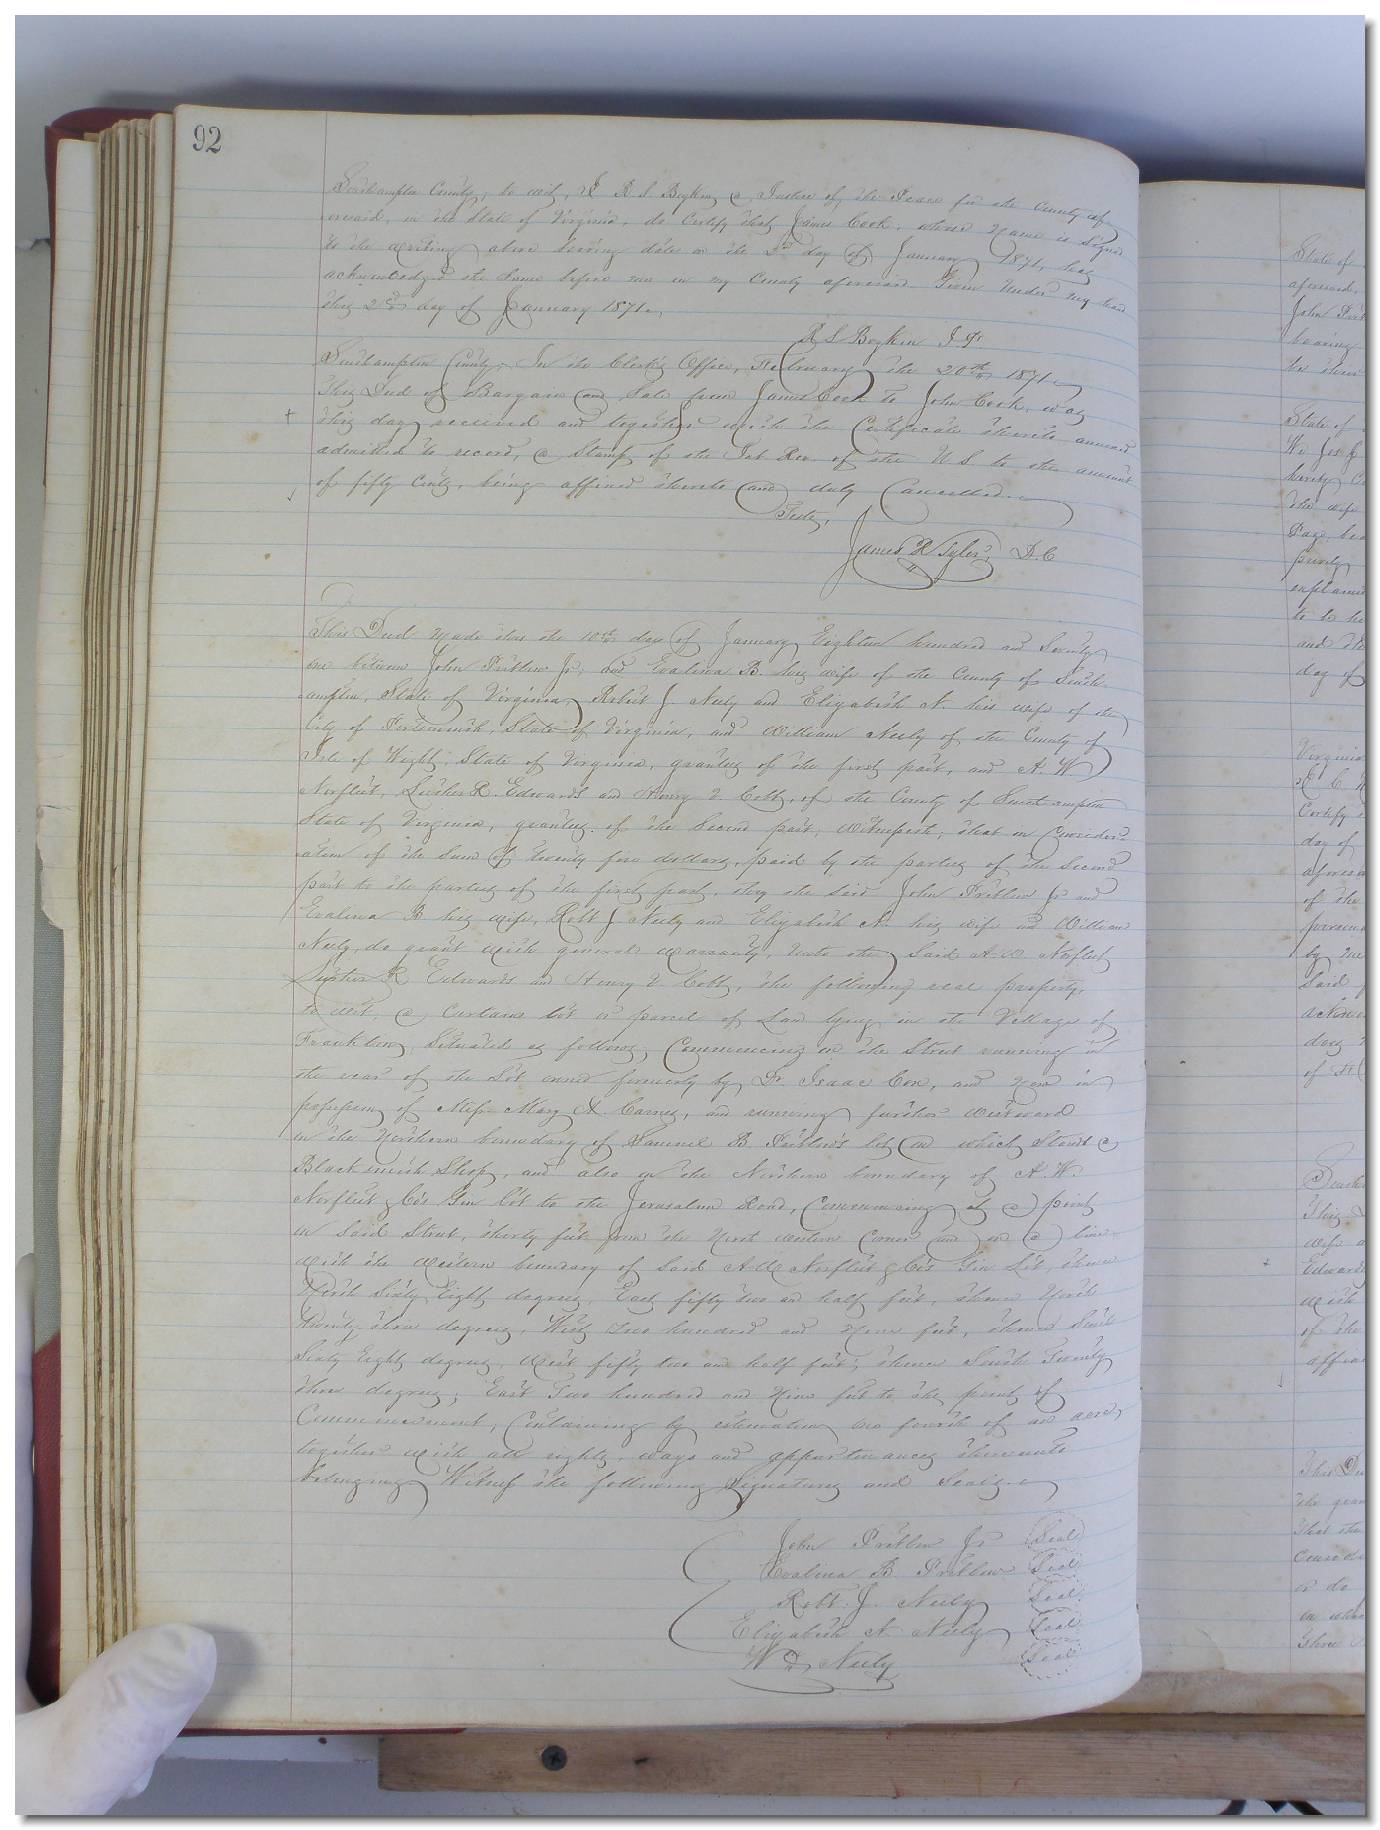 92
Southampton County, to wit, I R S Boykin, a Justice of the Peace for the County af
oresaid, in the State of Virginia, do Certify that James Cook, whose Name is Signed
to the writing above bearing date on the 2nd day of January 1871, has
acknowledged the Same before me in my County aforesaid. Given Under my hand
this day of January 1871.
R S Boykin J. P.
Southampton County, In the Clerk's Office, February the 20th 1871.
This Deed of Bargain and Sale from James Cook to John Cook, was
this day received and together with the Certificate thereto annexed
admitted to record, a Stamp of the Int Rev. of the U S to the amount
of fifty Cents, being affixed thereto and duly Cancelled.
Teste,
James R Tyler, D. C
This Deed Made this the 10th day of January Eighteen hundred and Seventy
one between John Pretlow Jr, and Evalina B. his wife of the County of South
ampton, State of Virginia, Robert J. Neely and Elizabeth N. his wife of the
City of Portsmouth, State of Virginia, and William Neely of the County of
Isle of Wight, State of Virginia, grantors of the first part, and A. W.
Norfleet, Luther R. Edwards and Henry Cobb, of the County of Southampton
State of Virginia, grantees of the Second part, Witnesseth, that in Consider-
ation of the Sum of twenty five dollars, paid by the parties of the Second
part to the parties of the first part, they the said John Pretlow Jr and
Evalina B his wife, Robt J Neely and Elizabeth N. his wife and William
Neely, do grant with general warranty, unto the Said A. W. Norfleet
Luther R Edwards and Henry Cobb, the following real property,
to wit, a Certain lot or parcel of Land lying in the Village of
Franklin, Situated as follows, Commencing on the Street running in
the rear of the Lot owned formerly by Dr. Isaac Cox, and now in
possession of Miss Mary A Carney, and running further Westward
on the Northern boundary of Samuel B. Pretlow's lot on which Stands a
Blacksmith Shop, and also on the Northern boundary of A. W.
Norfleet & Co's Gin Lot to the Jerusalem Road, Commencing at a point
on Said Street, thirty feet from the North western Corner and on a line
with the western boundary of Said A. W. Norfleet & Co's Gin Lot, thence
North Sixty Eight degrees, East fifty two and half feet, thence North
Twenty three degrees, West Two hundred and Nine feet, thence South
Sixty Eight degrees, West fifty two and half feet; thence South Twenty
three degrees, East Two hundred and Nine feet to the point of
Commencement, Containing by estimation one fourth of an acre,
together with all rights, ways and appurtenances thereunto
belonging Witness the following Signatures and Seals.
John Pretlow Jr Seal
Evalina B. Pretlow Seal
Robt. J. Neely Seal
Elizabeth N. Neely Seal
Wm Neely Seal
State of
aforesaid,
bearing
State of
the wife
Page
to
and
day of
Virginia
Certify
day of
of the
by me
Said
day
of
This
wife
Edwards
with
of the
This
that the